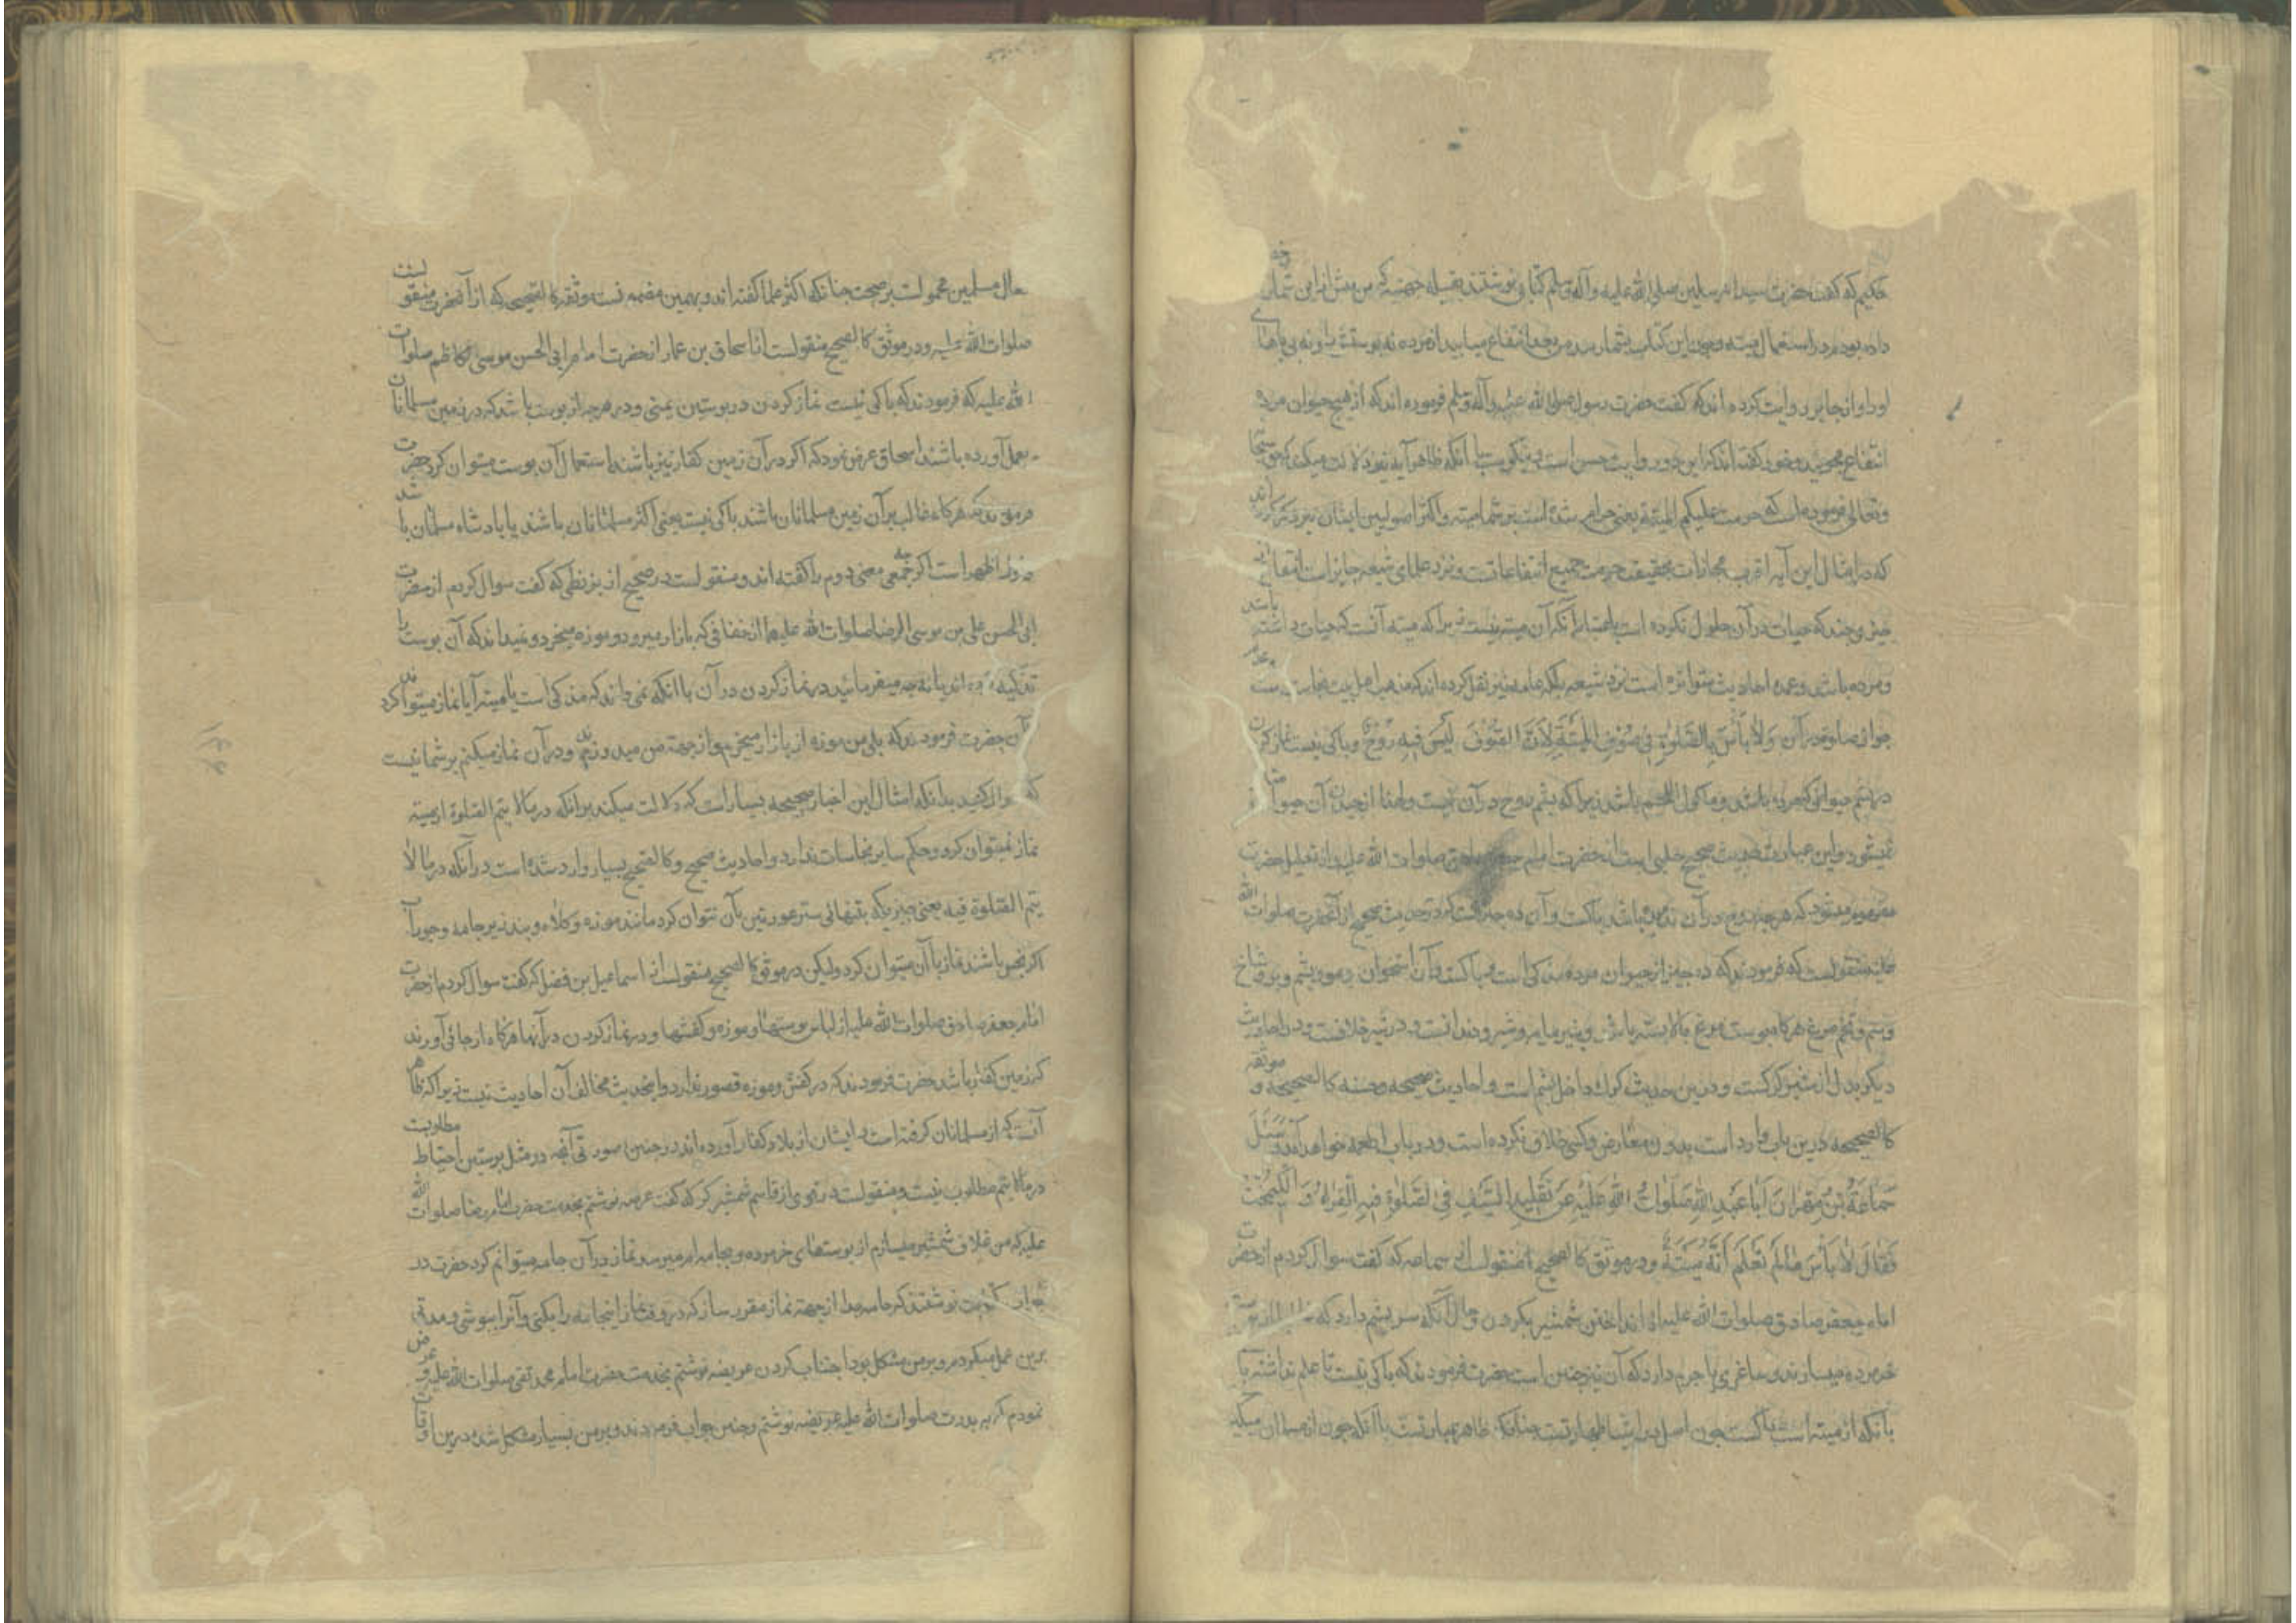 حکیم که گفت حضرت سید المرسلین صلی الله علیه و آله و سلم کتابی نوشتند بقبیله جهینه که من پیش ازین شما را
داده بودم در استعمال میته و چون این کتاب بشما رسد من بعد انتفاع میابید از مرده نه بپوست و نه بپی
او و از جابر روایت کرده اند که گفت حضرت رسول صلی الله علیه و آله و سلم فرموده اند که از هیچ حیوان مرده
انتفاع مجویید و خود گفته اند که این هر دو روایت حسن است دیگر آنکه ظاهر آیه نیز دلالت میکند که حق سبحانه
و تعالی فرموده است که حرمت علیکم المیتة یعنی حرام شده است بر شما میته و اکثر اصولیین ایشان نیز ذکر کرده اند
که در امثال این آیه اقرب مجازات بحقیقت حرمت جمیع انتفاعاتست و نزد علمای شیعه جایز است انتفاع از
چیزی چند که حیات در آن حلول نکرده است باعتبار آنکه آن میته نیست زیرا که میته آنست که حیات داشته باشد
و مرده باشد و عمده احادیث متواتره است نزد شیعه بلکه عامه نیز نقل کرده اند که مذهب اهل بیت
جواز صلوة در آن وَلاٰ بَأْسَ بِالصَّلٰوةِ فِی صُوْفِ الْمَیْتَةِ لِاَنَّ الصُّوْفَ لَیْسَ فِیْهِ رُوْحٌ و باکی نیست نماز کردن
در پشم حیوانی که مرده باشد و ماکول اللحم باشد زیرا که پشم روح در آن نیست و لهذا از چیدن آن حیوان متأثر
نمیشود و این عبارت حدیث صحیح حلبی است از حضرت امام جعفر صادق صلوات الله علیه و از تعلیل حضرت
مفهوم میشود که هر چه روح در آن ندمیده باشد پاکست و آن ده چیز است که در حدیث صحیح از آنحضرت صلوات الله
علیه منقولست که فرمودند که ده چیز از حیوان مرده مذکی است و پاکست و آن استخوان و مو و پشم و پر و شاخ
و سم و تخم مرغ هرگاه پوست مرغ بالا بسته باشد و پنیر مایه و شیر و دندانست و در شیر خلافست و در احادیث
دیگر بدل از شیر کرکست و درین حدیث کرک داخل پشم است و احادیث صحیحه و حسنه کالصحیحه و موثقه
کالصحیحه درین باب وارد است بدون معارض و کسی خلاف نکرده است و در باب اطعمه خواهد آمد وَسَئَلَ
سَمَاعَةُ بْنُ مِهْرَانَ اَبَا عَبْدِ اللهِ صَلَوَاتُ اللهِ عَلَیْهِ عَنْ تَقْلِیْدِ السَّیْفِ فِی الصَّلٰوةِ فِیْهِ الْفِرَاءُ وَ الْکَیْمُخْتُ
فَقَالَ لاٰ بَأْسَ مٰا لَمْ تَعْلَمْ اَنَّهُ مَیْتَةٌ و در موثق کالصحیح منقولست از سماعه که گفت سوال کردم از حضرت
امام جعفر صادق صلوات الله علیه از انداختن شمشیر بگردن و حال آنکه سریشم دارد که
خرموده میسازند و ساغری یا چرم دارد که آن نیز چنین است حضرت فرمودند که باکی نیست تا علم نداشته باشی
بآنکه از میته است پاکست چون اصل در اشیا طهارتست چنانکه ظاهر عبارتست یا آنکه چون از مسلمانان میگیرد
حال مسلمین محمولست بر صحت چنانکه اکثر علما گفته اند و بهمین مضمونست موثقه کالصحیحی که از آنحضرت منقولست
صلوات الله علیه و در موثق کالصحیح منقولست از اسحاق بن عمار از حضرت امام ابی الحسن موسی کاظم صلوات
الله علیه که فرمودند که باکی نیست نماز کردن در پوستین یمنی و در هرچه از پوست باشد که در زمین مسلمانان
بعمل آورده باشند اسحاق عرض نمود که اگر در آن زمین کفار نیز باشند استعمال آن پوست میتوان کرد حضرت
فرمودند که هرگاه غالب بر آن زمین مسلمانان باشند باکی نیست یعنی اکثر مسلمانان باشند یا پادشاه مسلمان باشد
و اول اظهر است اگر چه جمعی معنی دوم را گفته اند و منقولست در صحیح از بزنطی که گفت سوال کردم از حضرت
ابی الحسن علی بن موسی الرضا صلوات الله علیهما از خفافی که ببازار میرود و موزه میخرد و نمیداند که آن پوست را
تذکیه کرده اند یا نه چه میفرمائید در نماز کردن در آن با آنکه نمی داند که مذکی است یا میته آیا نماز میتواند کرد
آن حضرت فرمودند که بلی من موزه از بازار میخرم و از جهة من میدوزند و در آن نماز میکنم بر شما نیست
که سوال کنید بدانکه امثال این اخبار صحیحه بسیار است که دلالت میکند بر آنکه در ما لا یتم الصلوة از میته
نماز نمیتوان کرد و حکم سایر نجاسات ندارد و احادیث صحیح و کالصحیح بسیار وارد شده است در آنکه در ما لا
یتم الصلوة فیه یعنی چیزی که بتنهائی ستر عورتین بآن نتوان کرد مانند موزه و کلاه و بند زیر جامه و جوراب
اگر نجس باشند نماز با آن میتوان کرد ولیکن در موثق کالصحیح منقولست از اسماعیل بن فضل که گفت سوال کردم از حضرت
امام جعفر صادق صلوات الله علیه از لباس پوستها و موزه و کفشها و در نماز کردن در آنها هرگاه از جائی آورند
که زمین کفار باشد حضرت فرمودند که در کفش و موزه قصور ندارد و اینحدیث مخالف آن احادیث نیست زیرا که ظاهر
آنست که از مسلمانان گرفته است و ایشان از بلاد کفار آورده اند در چنین صورتی آنچه در مثل پوستین احتیاط مطلوبست
در ما لا یتم مطلوب نیست و منقولست در قوی از قاسم شمشیرگر که گفت عریضه نوشتم بخدمت حضرت امام رضا صلوات الله
علیه که من غلاف شمشیر میسازم از پوستهای خرمرده و بجامه ام میرسد و نماز در آن جامه میتوانم کرد حضرت در
جواب نوشتند که جامه جدا از جهة نماز مقرر ساز که در وقت نماز اینجامه را بکنی و آنرا بپوشی و مدتی
برین عمل میکردم و بر من مشکل بود اجتناب کردن عریضه نوشتم بخدمت حضرت امام محمد تقی صلوات الله علیه و عرض
نمودم که به پدرت صلوات الله علیه عریضه نوشتم و چنین جواب فرمودند و بر من بسیار مشکل شده درین اوقات